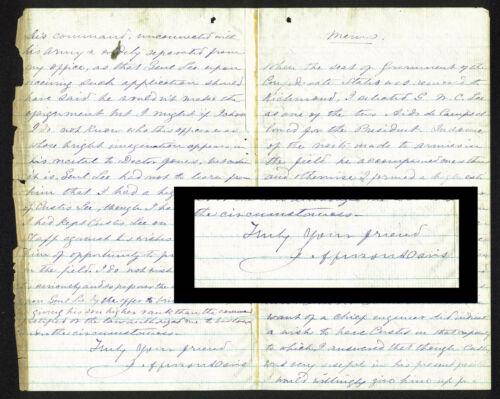 his command, unconnected with
his Army & widely separated from
my office, as that Genl Lee upon
such application should
have said he wouldn't make the
but I might if I chose
I do not know who the officer was
whose bright imagination appears in
his recital to Doctor Jones, but
it is, Genl Lee had not to learn from
him that I had a high
of Custis Lee, though I ha
I had kept Custis Lee on
Staff against his wishes
him of opportunity to
in the field. I do not
Genl Lee by the offer to
giving his son higher rank than the
or the law authorized me to bestow
the circumstances.
Truly Your friend
Jefferson Davis
Memo.
When the seat of Government of the
Confederate States was removed to
Richmond, I selected G. W. C. Lee
as one of the two Aids de Camp
for the President. In some
of the visits made to armies in
the field he accompanied me then
and otherwise I formed a high
the circumstances.
Truly Your friend
Jefferson Davis
want of a chief engineer
a wish to have Custis in that capacity
to which I answered that though Custis
was very useful in his present position
I would willingly give him up